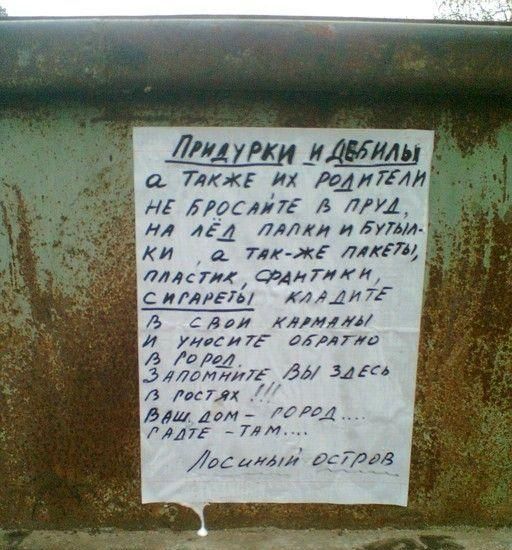 ПРИДУРКИ И ДЕБИЛЫ
а ТАКЖЕ ИХ РОДИТЕЛИ
НЕ БРОСАЙТЕ В ПРУД,
НА ЛЁД ПАПКИ И БУТЫЛ-
КИ , а ТАК-ЖЕ ПАКЕТЫ,
ПЛАСТИК, ФАНТИКИ,
СИГАРЕТЫ КЛАДИТЕ
В СВОИ КАРМАНЫ
И УНОСИТЕ ОБРАТНО
В ГОРОД.
ЗАПОМНИТЕ ВЫ ЗДЕСЬ
В ГОСТЯХ !!!
ВАШ ДОМ - ГОРОД....
ГАДТЕ - ТАМ....
ЛОСИНЫЙ ОСТРОВ